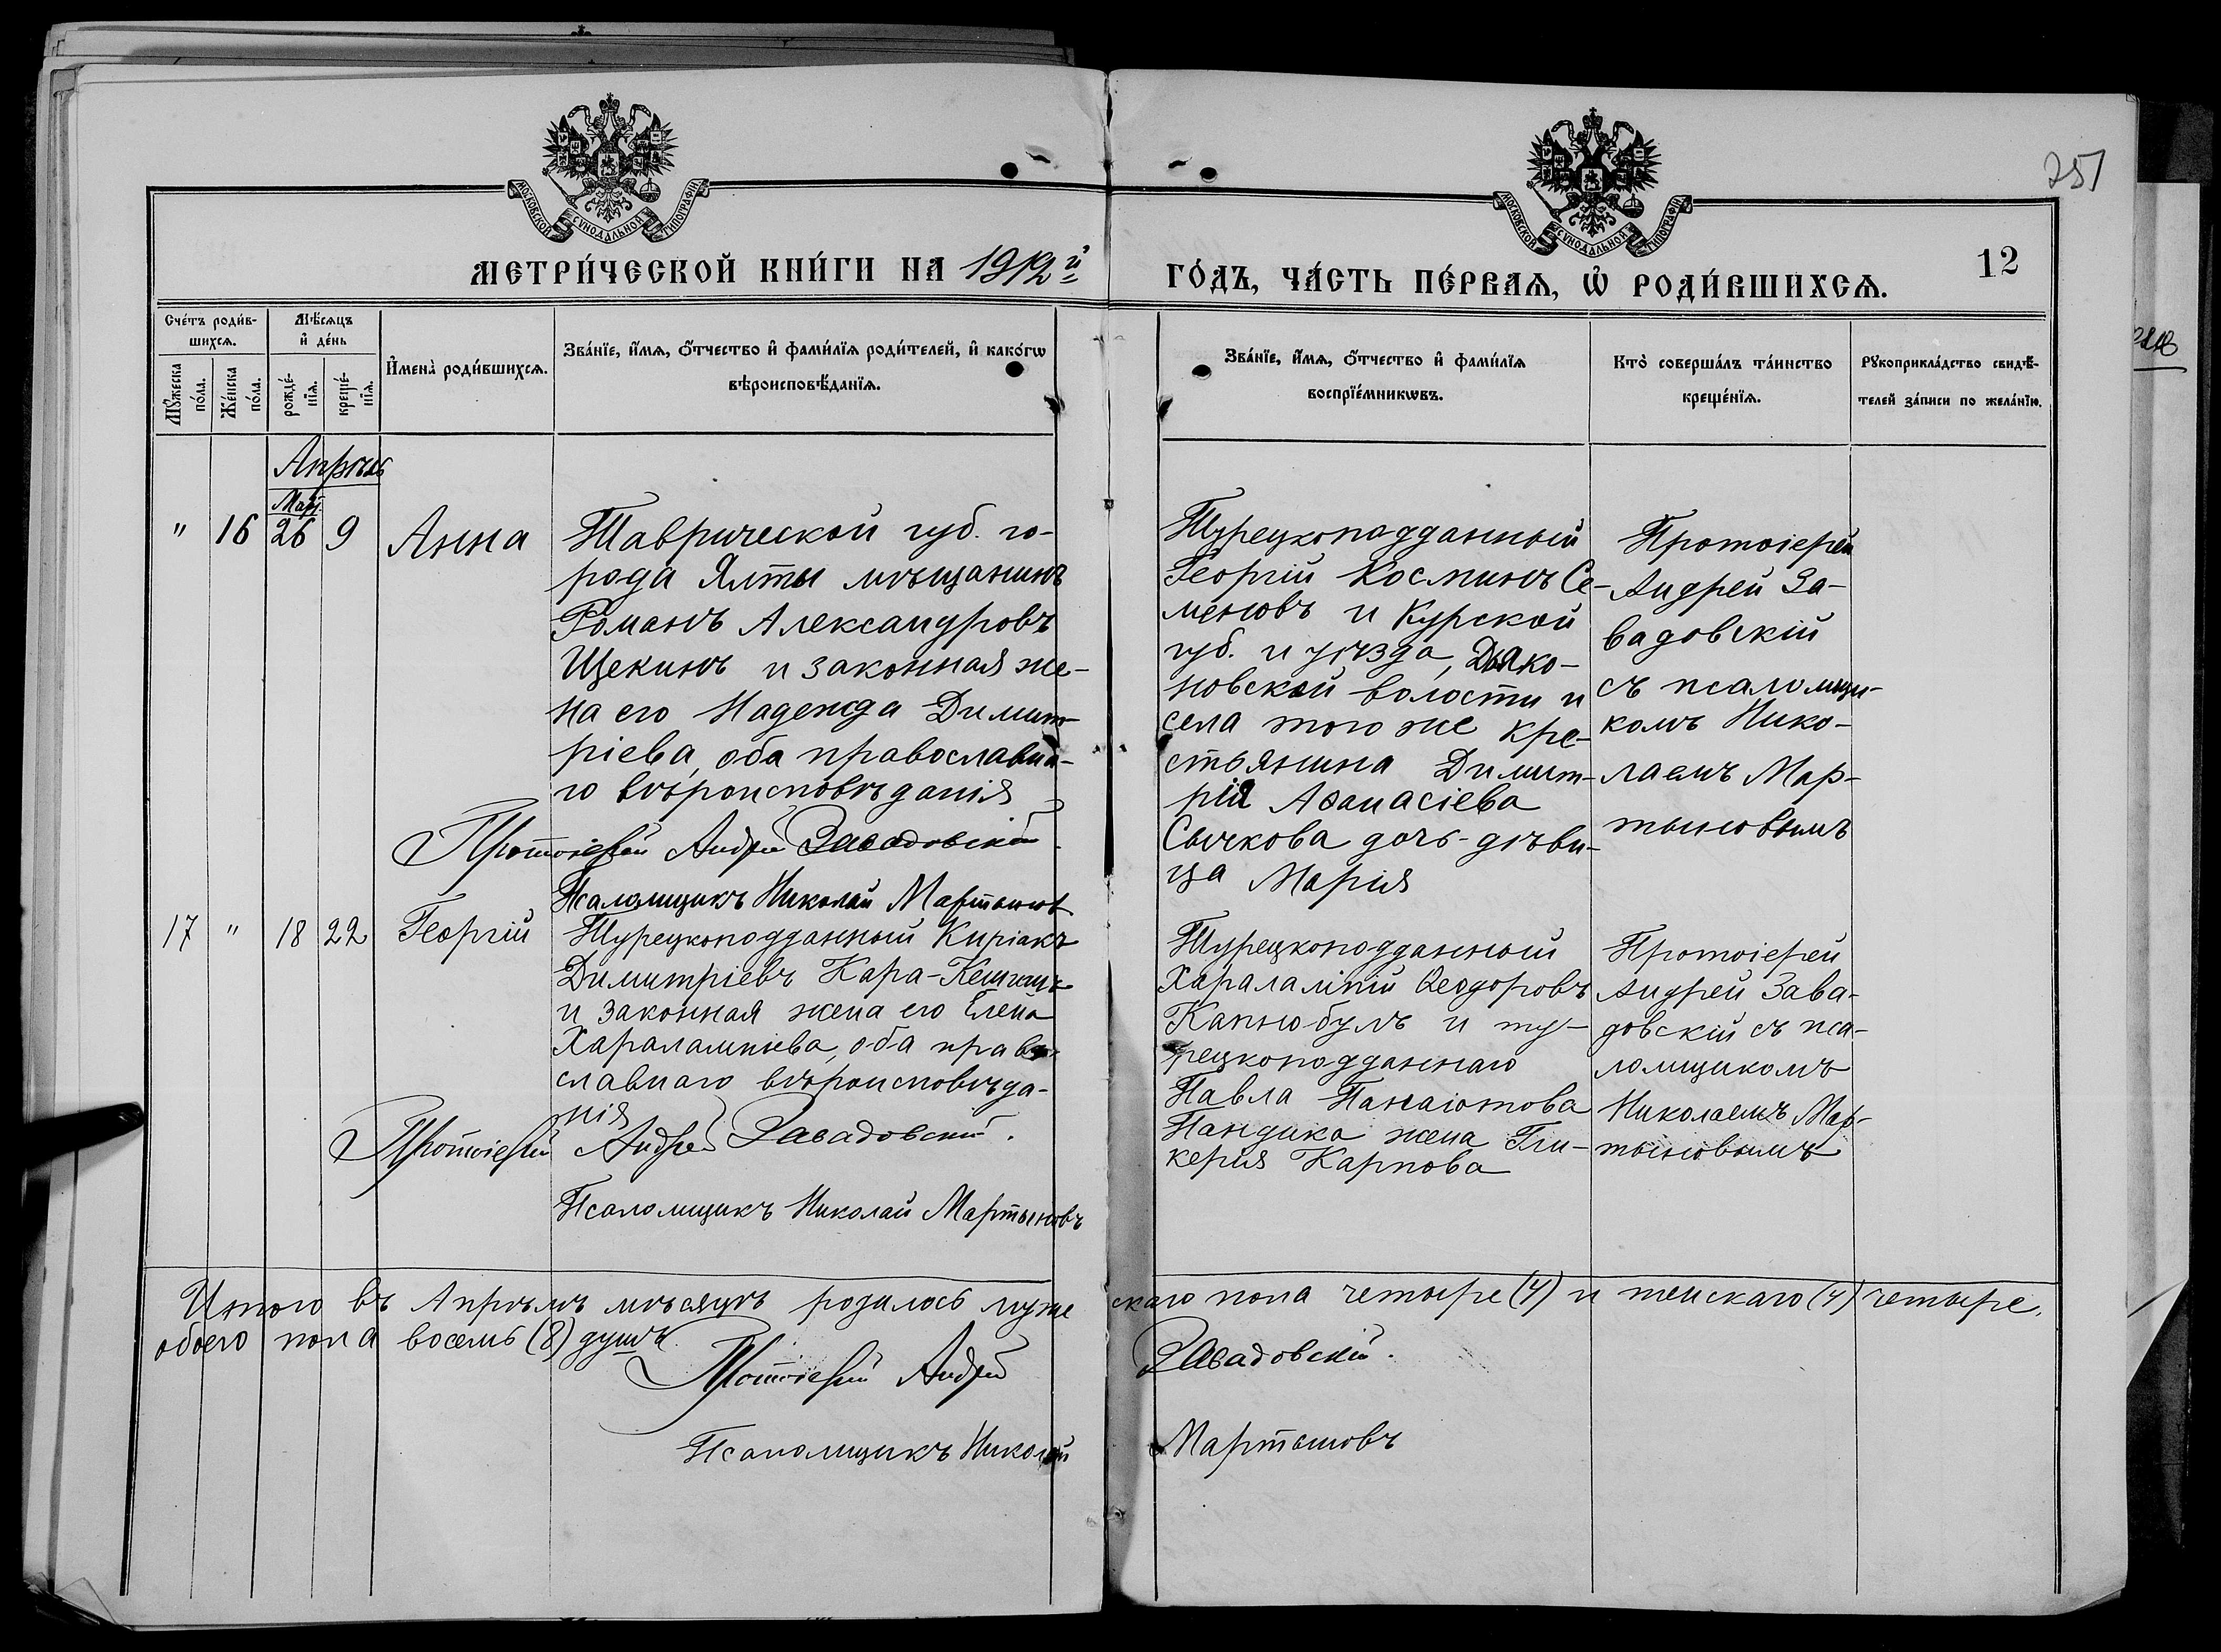 МОСКОВСКОЙ СѴНОДАЛЬНОЙ ТИПОГРАФІИ
МОСКОВСКОЙ СѴНОДАЛЬНОЙ ТИПОГРАФІИ
251
МЕТРИ́ЧЕСКОЙ КНИ́ГИ НА 1912й
ГО́ДЪ, ЧА́СТЬ ПЕ́РВАѦ, Ѡ҆ РОДИ́ВШИХСѦ.
12
Сче́тъ роди́в-
шихсѧ.
Мꙋ́жеска
по́ла.
Же́нска
по́ла.
Мѣ́сѧцъ
и҆ де́нь
рожде́-
нїѧ.
креще́-
нїѧ.
И҆мена̀ роди́вшихсѧ.
Зва́нїе, и҆́мѧ, ѻ҆́тчество и҆ фами́лїѧ роди́телей, и҆ како́гѡ
вѣроисповѣ́данїѧ.
Зва́нїе, и҆́мѧ, ѻ҆́тчество и҆ фами́лїѧ
воспрїе́мникѡвъ.
Кто̀ соверша́лъ та́инство
креще́нїѧ.
Рꙋкоприкла́дство свидѣ́-
телей за́писи по жела́нїю.
Апрѣль
Март.
" 16 26 9 Анна
Таврической губ. го-
рода Ялты мѣщанинъ
Романъ Александровъ
Щекинъ и законная же-
на его Надежда Димит-
ріева, оба православна-
го вѣроисповѣданія
Протоіерей Андрей Завадовскій
Псаломщикъ Николай Мартыновъ
Турецкоподданный
Георгій Косминъ Се-
меновъ и Курской
губ. и уѣзда, Дьяко-
новской волости и
села того же кре-
стьянина Димит-
рія Аѳанасіева
Сычкова дочь-дѣви-
ца Марія
Протоіерей
Андрей За-
вадовскій
съ псаломщи-
комъ Нико-
лаемъ Мар-
тыновымъ
17 " 18 22 Георгій
Турецкоподданный Киріакъ
Димитріевъ Кара-
и законная жена его Елена
Харалампіева, оба право
славнаго вѣроисповѣда-
нія
Протоіерей Андрей Завадовскій.
Псаломщикъ Николай Мартыновъ
Турецкоподданный
Харалампій Ѳеодоровъ
и ту-
рецкоподданнаго
Павла Панаіотова
Пандика жена Гли-
керія Карпова
Протоіерей
Андрей Зава-
довскій съ пса-
ломщикомъ
Николаемъ Мар-
тыновымъ
Итого въ Апрѣлѣ мѣсяцѣ родилось муже скаго пола четыре (4) и женскаго (4) четыре,
обоего пола восемь (8) душъ.
Протоіерей Андрей Завадовскій.
Псаломщикъ Николай Мартыновъ